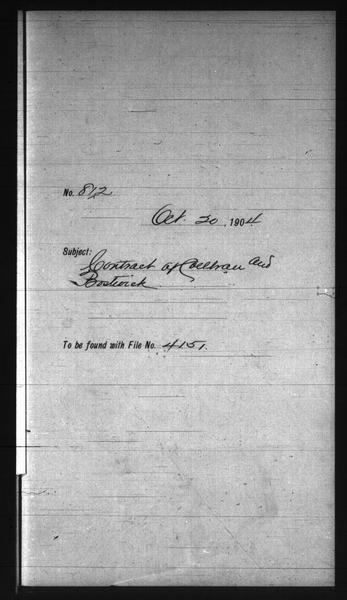 No. 812
Oct. 20, 1904
Subject:
Contract of and
Bostwick
To be found with File No. 4151.